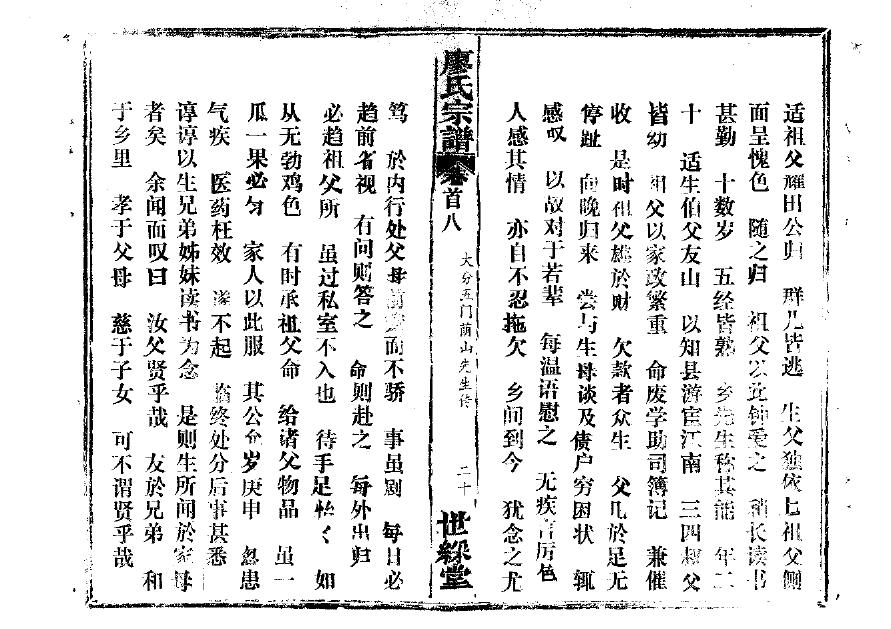 适祖父耀田公归 群儿皆逃 生父独依七祖父侧
面呈愧色 随之归 祖父以此钟爱之 稍长读书
甚勤 十数岁 五经皆熟 乡先生称其能 年二
十 适生伯父友山 以知县游宦江南 三四叔父
皆幼 祖父以家政繁重 命废学助司簿记 兼催
收 是时祖父雄於财 欠款者众生 父几於足无
停趾 向晚归来 尝与生母谈及债户穷困状 辄
感叹 以故对于若辈 每温语慰之 无疾言厉色
人感其情 亦自不忍拖欠 乡间到今 犹念之尤
廖氏宗譜 卷首八 大分五门荫山先生传 二十 世綵堂
笃 於内行处父母前 而不骄 事虽剧 每日必
趋前省视 有问则答之 命则赴之 每外出归
必趋祖父所 虽过私室不入也 待手足怡く 如
从无勃鸡色 有时承祖父命 给诸父物品 虽一
瓜一果必匀 家人以此服 其公 岁庚申 忽患
气疾 医药枉效 遂不起 临终处分后事甚悉
谆谆以生兄弟姊妹读书为念 是则生所闻於家母
者矣 余闻而叹曰 汝父贤乎哉 友於兄弟 和
于乡里 孝于父母 慈于子女 可不谓贤乎哉